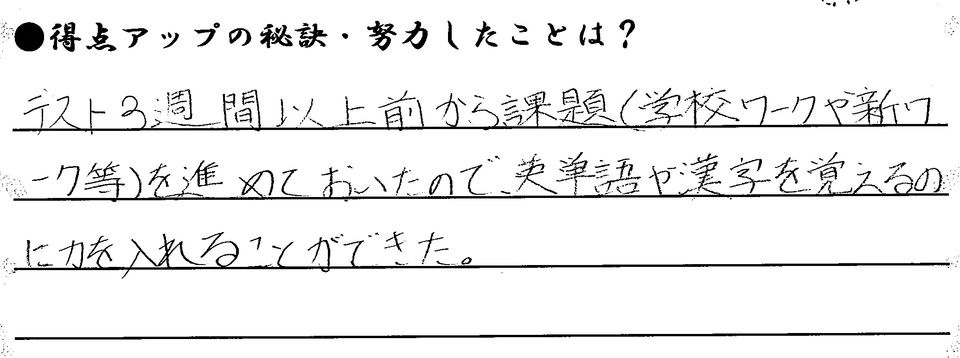 ●得点アップの秘訣・努力したことは？
テスト3週間以上前から課題(学校ワークや新ワ
ーク等)を進めておいたので、英単語や漢字を覚えるの
に力を入れることができた。